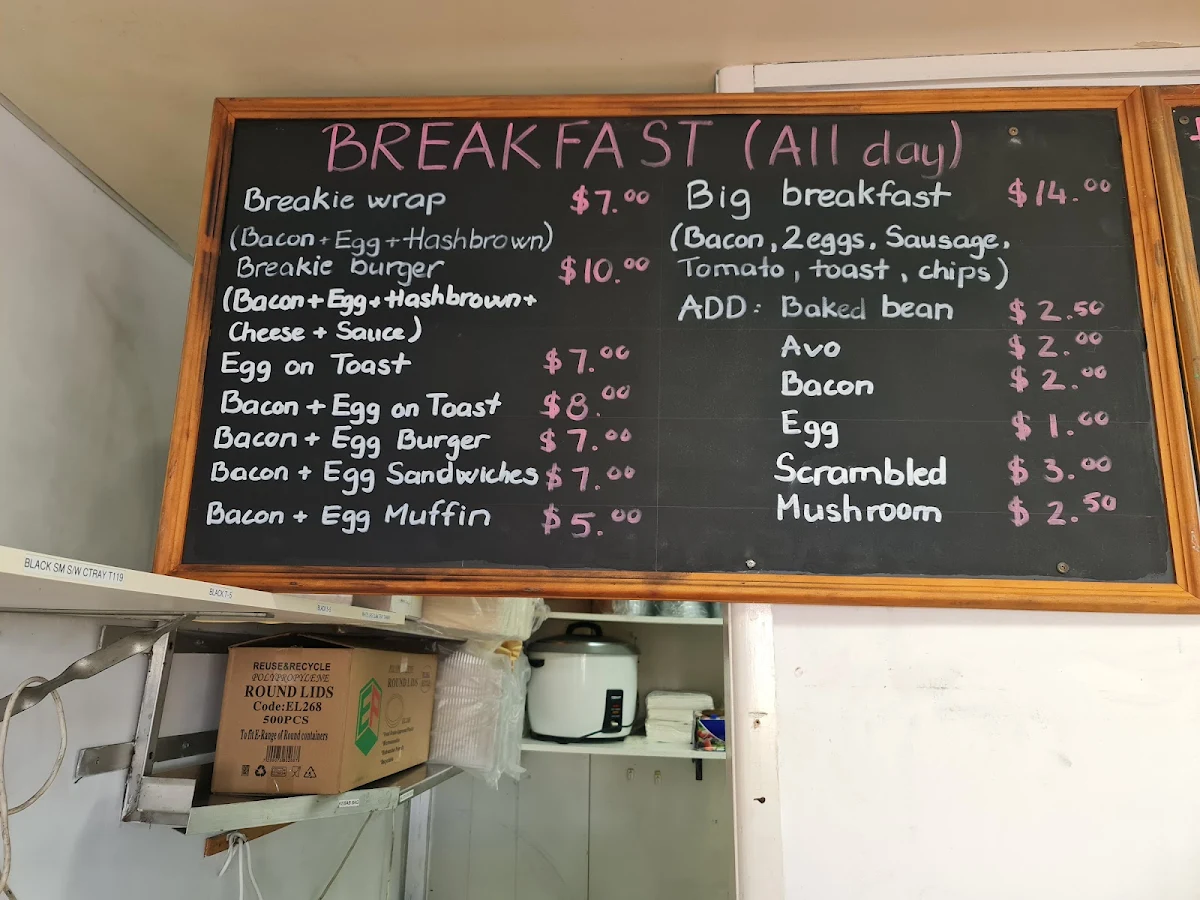 BREAKFAST (All day)
Breakie wrap $7.00
(Bacon + Egg + Hashbrown)
Breakie burger $10.00
(Bacon + Egg + Hashbrown +
Cheese + Sauce)
Egg on Toast $7.00
Bacon + Egg on Toast $8.00
Bacon + Egg Burger $7.00
Bacon + Egg Sandwiches $7.00
Bacon + Egg Muffin $5.00
Big breakfast $14.00
(Bacon, 2eggs, Sausage,
Tomato, toast, chips)
ADD: Baked bean $2.50
Avo $2.00
Bacon $2.00
Egg $1.00
Scrambled $3.00
Mushroom $2.50
BLACK SM S/W CTRAY T119
REUSE&RECYCLE
POLYPROPYLENE
ROUND LIDS
Code:EL268
500PCS
To fit E-Range of Round containers
ROUND LIDS